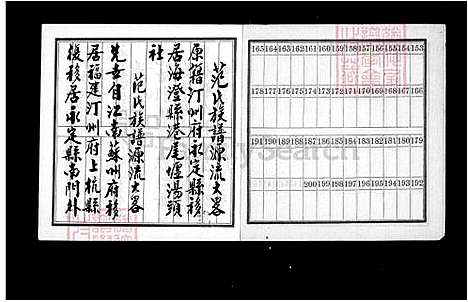 165 164 163 162 161 160 159 158 157 156 155 154 153
178 177 176 175 174 173 172 171 170 169 168 167 166
191 190 189 188 187 186 185 184 183 182 181 180 179
200 199 198 197 196 195 194 193 192
范氏族譜源流大畧
原籍汀州府永定縣移
居海澄縣港尾堡湯頭
社
范氏族譜源流大畧
先世自江南蘇州府移
居福建汀州府上杭縣
後移居永定縣南門外